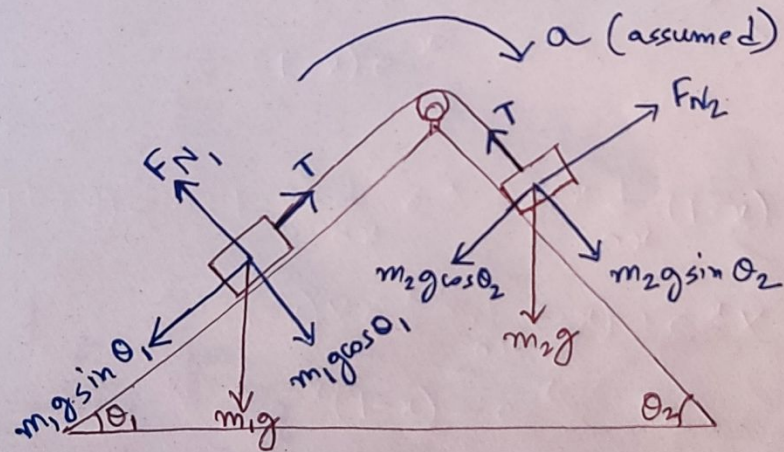 a (assumed)
FN₂
T
FN₁
T
m₂gcosθ₂
m₂gsinθ₂
m₁g.sinθ₁
m₁gcosθ₁
m₂g
θ₁
m₁g
θ₂